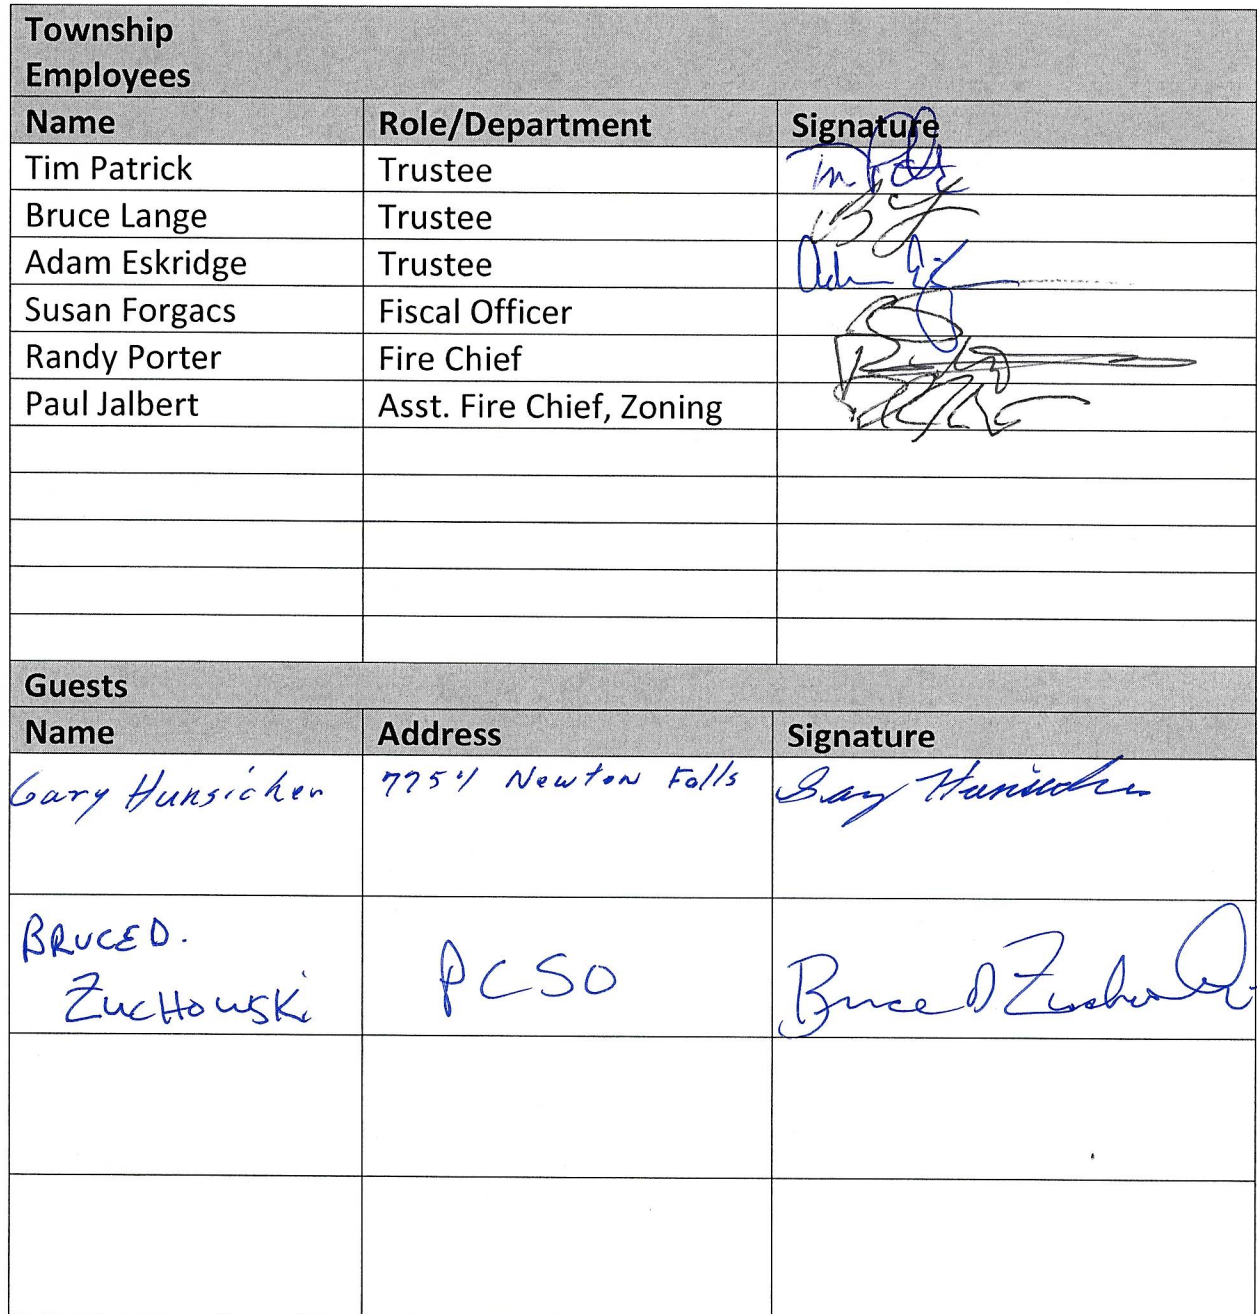 Township
Employees
Name Role/Department Signature
Tim Patrick Trustee
Bruce Lange Trustee
Adam Eskridge Trustee
Susan Forgacs Fiscal Officer
Randy Porter Fire Chief
Paul Jalbert Asst. Fire Chief, Zoning
Guests
Name Address Signature
Gary Hunsicker Newton Falls Gary Hunsicker
BRUCE D.
ZUCHOWSKi PCSO Bruce D Zuchowski